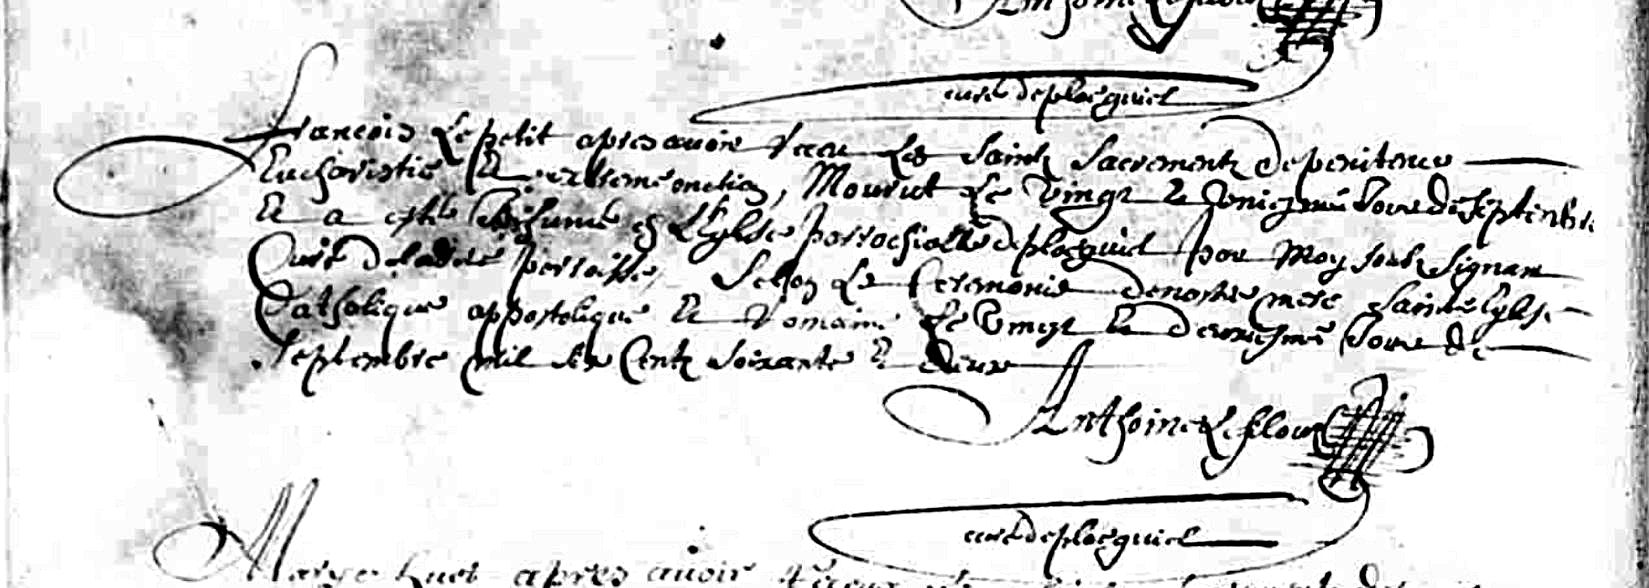 curé de ploeguiel
francois Le petit apres auoir Receu Les Saintz Sacrementz de penitence
Eucharistie Et extreme onction, Mourut Le Vingt et Vniesme Jour de septembre
Et a esté Inhumé en L'Eglise parrochialle de ploeguiel par Moy soubz signant
Curé de ladite parroisse, Selon Le Ceremonie de nostre mere Sainte Eglise
Catholique appostolique Et Romaine Le Vingt Et deuxiesme Jour de
Septembre mil six Centz Soixante Et deux
Anthoine
curé de ploeguiel
apres auoir